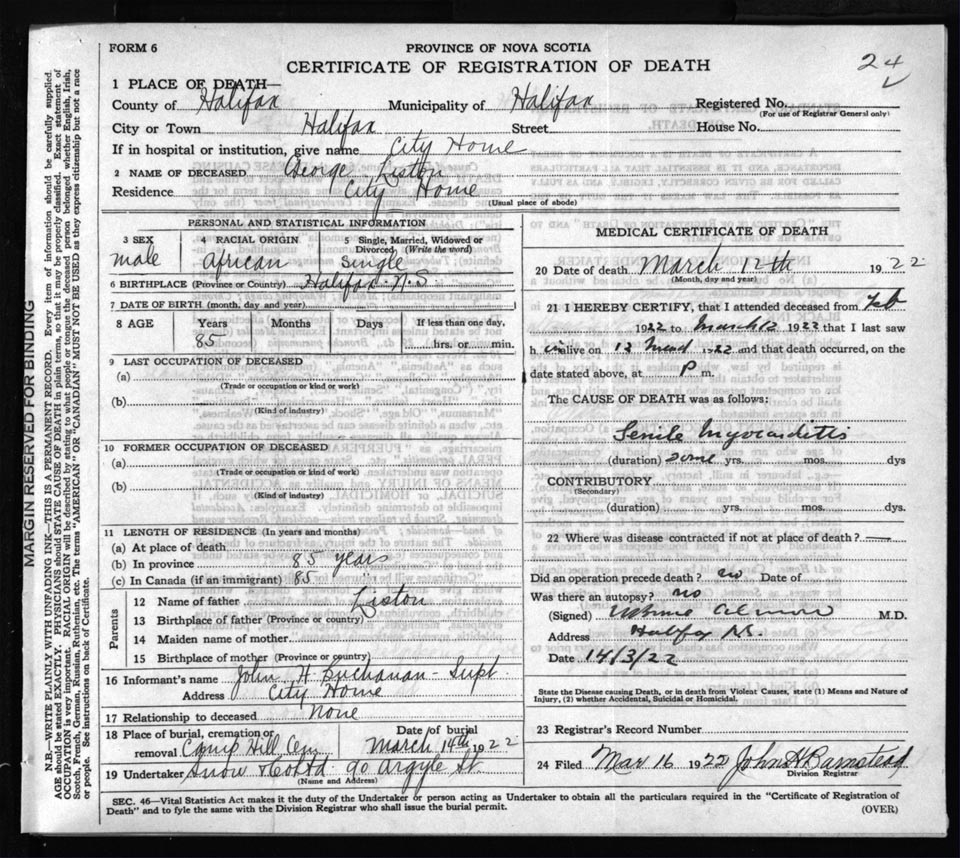 FORM 6
PROVINCE OF NOVA SCOTIA
CERTIFICATE OF REGISTRATION OF DEATH
24
1 PLACE OF DEATH—
County of Halifax Municipality of Halifax Registered No.
(For use of Registrar General only)
City or Town Halifax Street House No.
If in hospital or institution, give name City Home
2 NAME OF DECEASED George Liston
Residence City Home
(Usual place of abode)
PERSONAL AND STATISTICAL INFORMATION
3 SEX 4 RACIAL ORIGIN 5 Single, Married, Widowed or Divorced, (Write the word)
male African Single
6 BIRTHPLACE (Province or Country) Halifax N.S.
7 DATE OF BIRTH (month, day and year)
8 AGE Years Months Days If less than one day,
85 hrs. or min.
9 LAST OCCUPATION OF DECEASED
(a)
(Trade or occupation or kind or work)
(b)
(Kind of industry)
10 FORMER OCCUPATION OF DECEASED
(a)
(Trade or occupation or kind of work)
(b)
(Kind of industry)
11 LENGTH OF RESIDENCE (In years and months)
(a) At place of death
(b) In province 85 years
(c) In Canada (if an immigrant) 85
Parents
12 Name of father Liston
13 Birthplace of father (Province or country)
14 Maiden name of mother
15 Birthplace of mother (Province or country)
16 Informant's name John H Buchanan - Supt
Address City Home
17 Relationship to deceased None
18 Place of burial, cremation or removal Camp Hill Cem Date of burial March 14th 1922
19 Undertaker Snow & Co Ltd 90 Argyle St.
(Name and Address)
MEDICAL CERTIFICATE OF DEATH
20 Date of death March 12th 1922
(Month, day and year)
21 I HEREBY CERTIFY, that I attended deceased from Feb
1922 to March 12 1922 that I last saw
h im alive on 12 March 1922 and that death occurred, on the
date stated above, at P m.
The CAUSE OF DEATH was as follows:
Senile Myocarditis
(duration) some yrs. mos. dys
CONTRIBUTORY
(Secondary)
(duration) yrs. mos. dys.
22 Where was disease contracted if not at place of death?
Did an operation precede death? no Date of
Was there an autopsy? no
(Signed) Almon M.D.
Address Halifax N.S.
Date 14/3/22
State the Disease causing Death, or in death from Violent Causes, state (1) Means and Nature of
Injury, (2) whether Accidental, Suicidal or Homicidal.
23 Registrar's Record Number
24 Filed Mar 16 1922 John H Barnstead
Division Registrar
SEC. 46—Vital Statistics Act makes it the duty of the Undertaker or person acting as Undertaker to obtain all the particulars required in the "Certificate of Registration of
Death" and to fyle the same with the Division Registrar who shall issue the burial permit.
(OVER)
MARGIN RESERVED FOR BINDING
N.B.—WRITE PLAINLY WITH UNFADING INK—THIS IS A PERMANENT RECORD. Every item of information should be carefully supplied.
AGE should be stated EXACTLY. PHYSICIANS should STATE CAUSE OF DEATH in plain terms, so that it may be properly classified. Exact statement of
OCCUPATION is very important. RACIAL ORIGIN will be described by stating to what people or tongue the deceased person belonged whether English, Irish,
Scotch, French, German, Russian, Ruthenian, etc. The terms "AMERICAN" OR "CANADIAN" MUST NOT BE USED as they express citizenship but not a race
or people. See instructions on back of Certificate.